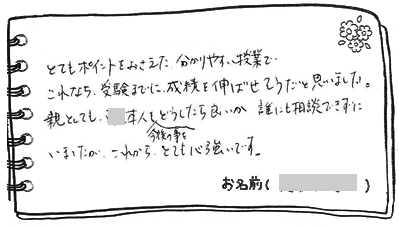 とてもポイントをおさえた、分かりやすい授業で
これなら、受験までに、成績を伸ばせそうだと思いました。
親としても、本人もどうしたら良いか 誰にも相談できずに
今後の事を
いましたが、これから、とても心強いです。
お名前( )